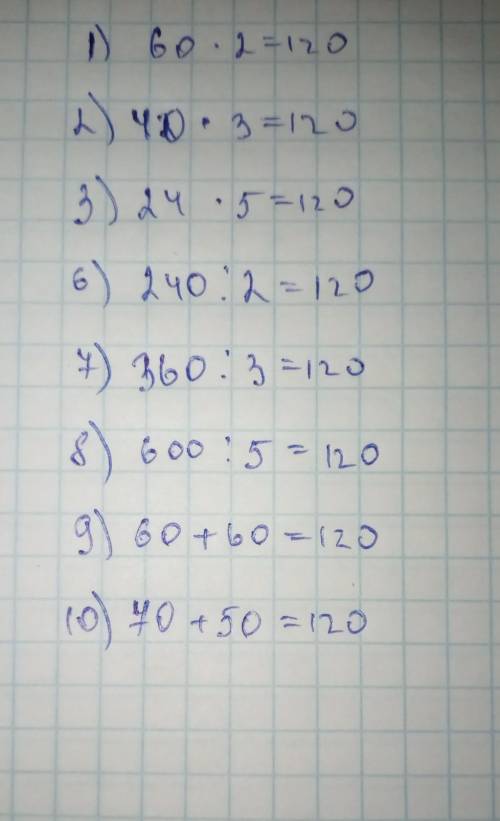 1) 60 · 2 = 120
2) 40 · 3 = 120
3) 24 · 5 = 120
6) 240 : 2 = 120
7) 360 : 3 = 120
8) 600 : 5 = 120
9) 60 + 60 = 120
10) 70 + 50 = 120